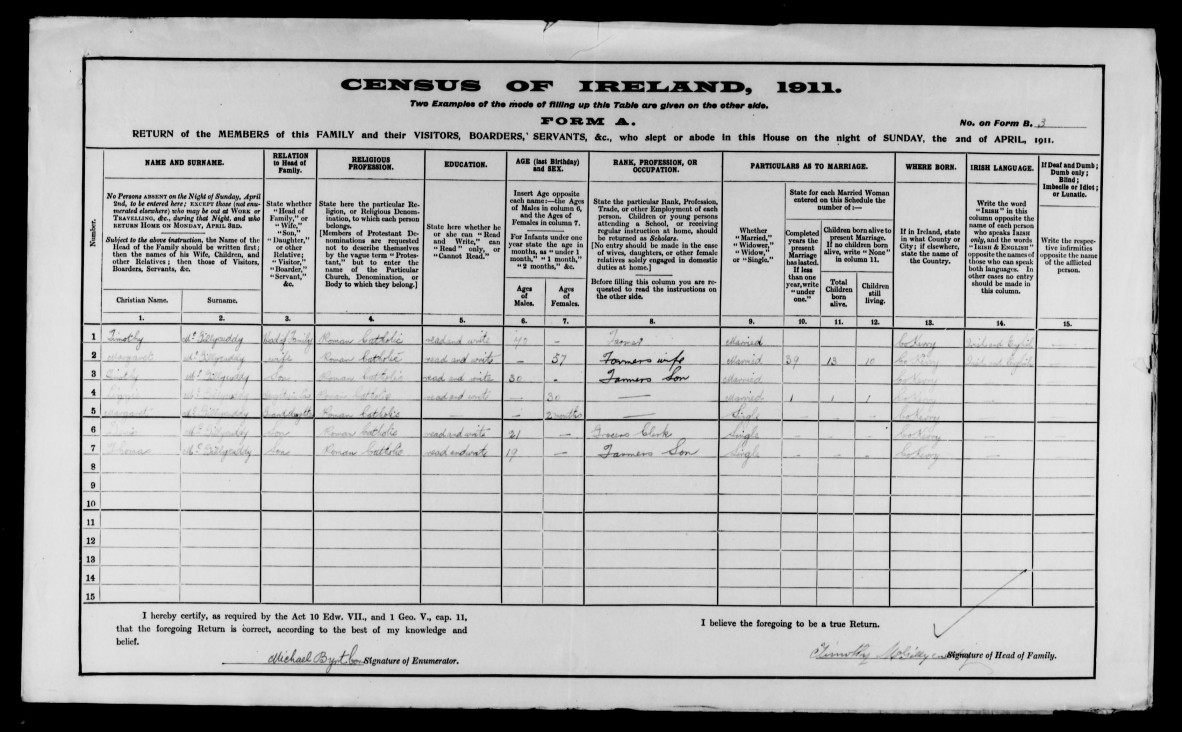 CENSUS OF IRELAND, 1911.
Two Examples of the mode of filling up this Table are given on the other side.
FORM A.
No. on Form B. 3
RETURN of the MEMBERS of this FAMILY and their VISITORS, BOARDERS, SERVANTS, &c., who slept or abode in this House on the night of SUNDAY, the 2nd of APRIL, 1911.
Number.
NAME AND SURNAME.
No Persons ABSENT on the Night of Sunday, April
2nd, to be entered here; EXCEPT those (not enu-
merated elsewhere) who may be out at WORK or
TRAVELLING, &c., during that Night, and who
RETURN HOME ON MONDAY, APRIL 3RD.
Subject to the above instruction, the Name of the
Head of the Family should be written first;
then the names of his Wife, Children, and
other Relatives; then those of Visitors,
Boarders, Servants, &c.
Christian Name.
Surname.
1.
2.
RELATION
to Head of
Family.
State whether
"Head of
Family," or
"Wife,"
"Son,"
"Daughter,"
or other
Relative;
"Visitor,"
"Boarder,"
"Servant,"
&c.
3.
RELIGIOUS
PROFESSION.
State here the particular Re-
ligion, or Religious Denom-
ination, to which each person
belongs.
[Members of Protestant De-
nominations are requested
not to describe themselves
by the vague term "Protes-
tant," but to enter the
name of the Particular
Church, Denomination, or
Body to which they belong.]
4.
EDUCATION.
State here whether he
or she can "Read
and Write," can
"Read" only, or
"Cannot Read."
5.
AGE (last Birthday)
and SEX.
Insert Age opposite
each name:—the Ages
of Males in column 6,
and the Ages of
Females in column 7.
For Infants under one
year state the age in
months, as "under 1
month," "1 month,"
"2 months," &c.
Ages
of
Males.
Ages
of
Females.
6.
7.
RANK, PROFESSION, OR
OCCUPATION.
State the particular Rank, Profession,
Trade, or other Employment of each
person. Children or young persons
attending a School, or receiving
regular instruction at home, should
be returned as Scholars.
[No entry should be made in the case
of wives, daughters, or other female
relatives solely engaged in domestic
duties at home.]
Before filling this column you are re-
quested to read the instructions on
the other side.
8.
PARTICULARS AS TO MARRIAGE.
Whether
"Married,"
"Widower,"
"Widow,"
or "Single."
9.
State for each Married Woman
entered on this Schedule the
number of:—
Completed
years the
present
Marriage
has lasted.
If less
than one
year, write
"under
one."
Children born alive to
present Marriage.
If no children born
alive, write "None"
in column 11.
Total
Children
born
alive.
Children
still
living.
10.
11.
12.
WHERE BORN.
If in Ireland, state
in what County or
City; if elsewhere,
state the name of
the Country.
13.
IRISH LANGUAGE.
Write the word
"IRISH" in this
column opposite the
name of each person
who speaks IRISH
only, and the words
"IRISH & ENGLISH"
opposite the names of
those who can speak
both languages. In
other cases no entry
should be made in
this column.
14.
If Deaf and Dumb;
Dumb only;
Blind;
Imbecile or Idiot;
or Lunatic.
Write the respec-
tive infirmities
opposite the name
of the afflicted
person.
15.
1 Timothy McGillycuddy Head of Family Roman Catholic read and write — Farmer Married Co Kerry Irish and English
2 Margaret McGillycuddy wife Roman Catholic read and write — 57 Farmers wife Married 39 13 10 Co Kerry Irish and English
3 McGillycuddy Son Roman Catholic read and write 30 - Farmers Son Married Co Kerry
4 McGillycuddy Roman Catholic read and write — 30 — Married 1 1 1 Co Kerry —
5 Margaret McGillycuddy Roman Catholic — — 2 months — Single — — — Co Kerry —
6 McGillycuddy Son Roman Catholic read and write 21 — Grocers Clerk Single — — — Co Kerry —
7 Thomas McGillycuddy Son Roman Catholic read and write 19 — Farmers Son Single — — — Co Kerry —
8
9
10
11
12
13
14
15
I hereby certify, as required by the Act 10 Edw. VII., and 1 Geo. V., cap. 11,
that the foregoing Return is correct, according to the best of my knowledge and
belief.
Michael Signature of Enumerator.
I believe the foregoing to be a true Return.
Timothy McGillycuddy Signature of Head of Family.